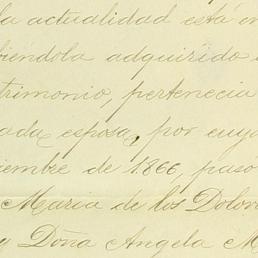 la actualidad está en
biéndola adquirido
trimonio, pertenecia
ada esposa, por cuya
iembre de 1.866, pasó
Maria de los Dolor
y Doña Angela M